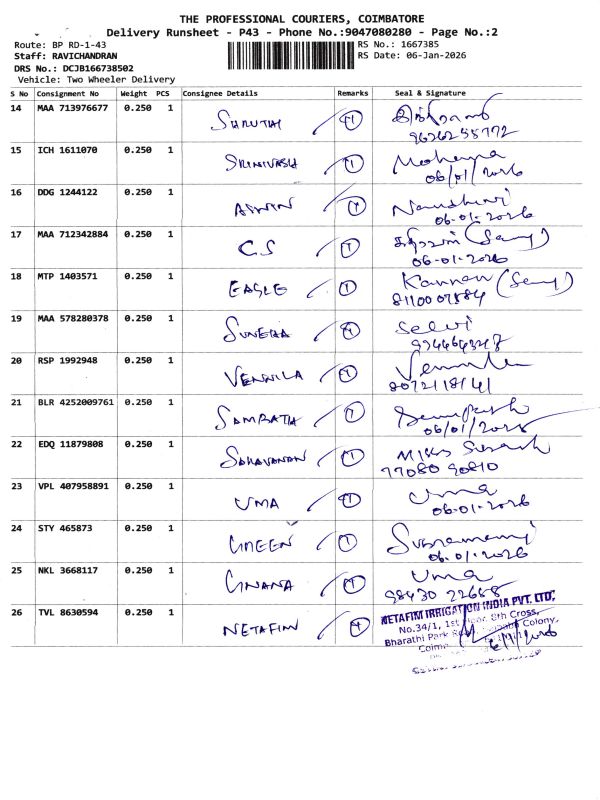 THE PROFESSIONAL COURIERS, COIMBATORE
Delivery Runsheet - P43 - Phone No.:9047080280 - Page No.:2
Route: BP RD-1-43
RS No.: 1667385
Staff: RAVICHANDRAN
RS Date: 06-Jan-2026
DRS No.: DCJB166738502
Vehicle: Two Wheeler Delivery
S No Consignment No Weight PCS Consignee Details Remarks Seal & Signature
14 MAA 713976677 0.250 1 SHRUTHI
9626255772
15 ICH 1611070 0.250 1 SRINIVASH 1
06/01/2026
16 DDG 1244122 0.250 1 ASWIN
06-01-2026
17 MAA 712342884 0.250 1 C.S 1
06-01-2026
18 MTP 1403571 0.250 1 EAGLE 1 Kannan
19 MAA 578280378 0.250 1 Selvi
20 RSP 1992948 0.250 1 VENNILA 1
8072118141
21 BLR 4252009761 0.250 1 SAMPATH 1
06/01/2026
22 EDQ 11879808 0.250 1 SARAVANAN 1
77080 90810
23 VPL 407958891 0.250 1 UMA 1 Uma
06-01-2026
24 STY 465873 0.250 1 GREEN 1
06-01-2026
25 NKL 3668117 0.250 1 GNANA 1 Uma
98430 22668
26 TVL 8630594 0.250 1 NETAFIM
NETAFIM IRRIGATION INDIA PVT. LTD.
No.34/1, 1st Floor, 8th Cross,
Bharathi Park Colony,